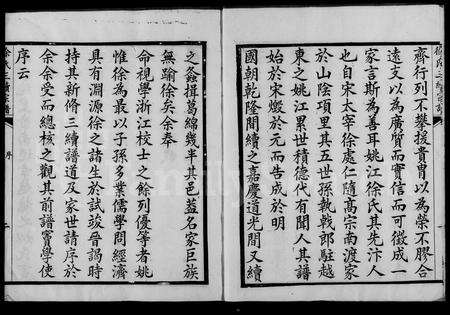 齊行列不攀援貴冑以為榮不膠合
遠文以為廣質而實信而可徵成一
家言斯為善耳姚江徐氏其先汴人
也自宋太宰徐處仁隨高宗南渡家
於山陰項里其五世孫執戟郎駐越
東之姚江累世積德代有聞人其譜
始於宋燬於元而告成於明
國朝乾隆間續之嘉慶道光間又續
之螽揖葛綿幾半其邑蓋名家巨族
無踰徐矣余奉
命視學浙江校士之餘列優等者姚
惟徐為最以子孫多業儒學問經濟
具有淵源徐之諸生於試竣晉謁時
持其新修三續譜道及家世請序於
余余受而總核之觀其前譜實學使
序云
序